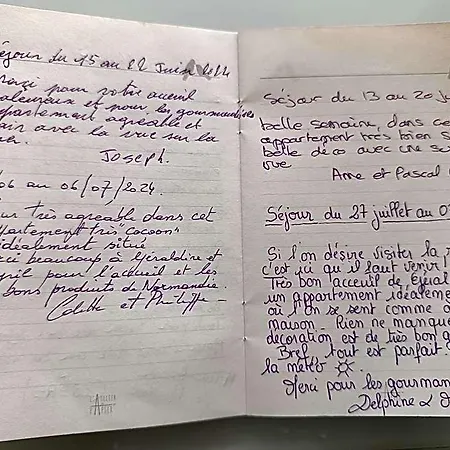 éjour du 15 au 22 Juin 2024
pour votre accueil
et pour les gourmandises
appartement agréable et
avec la vue sur la
Joseph.
06 au 06/07/2024.
très agréable dans cet
appartement très "cocoon"
idéalement situé
beaucoup à Géraldine et
pour l'accueil et les
bons produits de Normandie.
Colette et Philippe
L'ATELIER
PAPIER
Séjour du 13 au 20 Ju
belle semaine, dans ce
appartement très bien s
belle déco avec une su
vue
Anne et Pascal
Séjour du 27 juillet au 0
Si l'on désire visiter la
c'est ici qu'il faut venir !
Très bon acceuil de Géral
un appartement idéaleme
où l'on se sent comme
maison. Rien ne manque
décoration est de très bon g
Bref, tout est parfait.
la météo
Merci pour les gourman
Delphine &